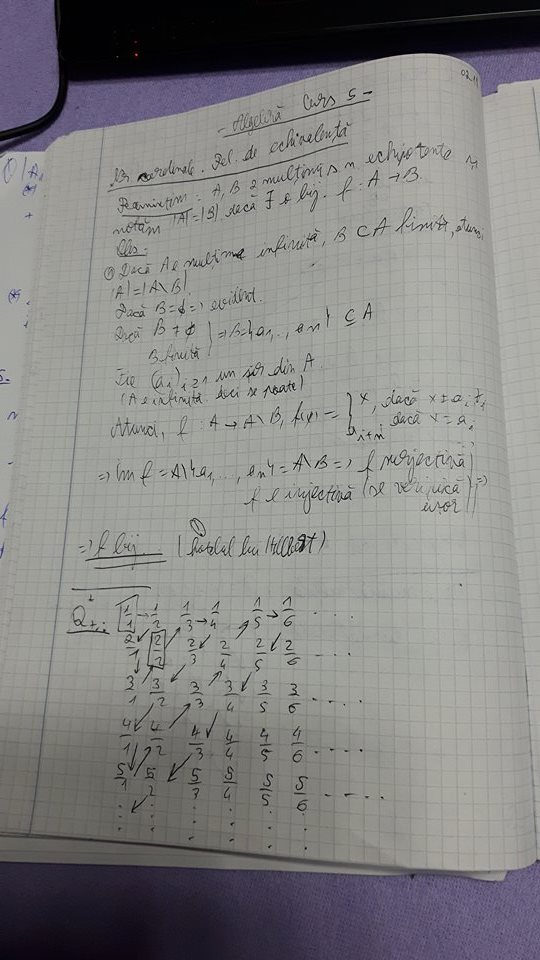 02.11
- Algebră Curs 5 -
Nr cardinale. Rel. de echivalență
Reamintim: A, B 2 mulțimi s n echipotente și
notăm |A|=|B| dacă ∃ o bij. f: A → B.
Obs.
① Dacă A e mulțime infinită, B ⊂ A finită, atunci
|A|=|A\B|
Dacă B=∅ ⇒ evident.
Dacă B≠∅
B finită | ⇒ B={a1,..., an} ⊆ A
Fie (ai)i≥1 un șir din A.
(A e infinită deci se poate)
Atunci, f: A → A\B, f(x) = { x, dacă x ≠ ai, ∀i
ai+n, dacă x = ai
⇒ Im f = A\{a1,..., an} = A\B ⇒ f surjectivă
f e injectivă (se verifică | ⇒
ușor)
⇒ f bij. (hotelul lui Hilbert)
Q+: 1/1 1/2 1/3 1/4 1/5 1/6 ....
2/1 2/2 2/3 2/4 2/5 2/6
3/1 3/2 3/3 3/4 3/5 3/6 ....
4/1 4/2 4/3 4/4 4/5 4/6 ....
5/1 5/2 5/3 5/4 5/5 5/6 ....